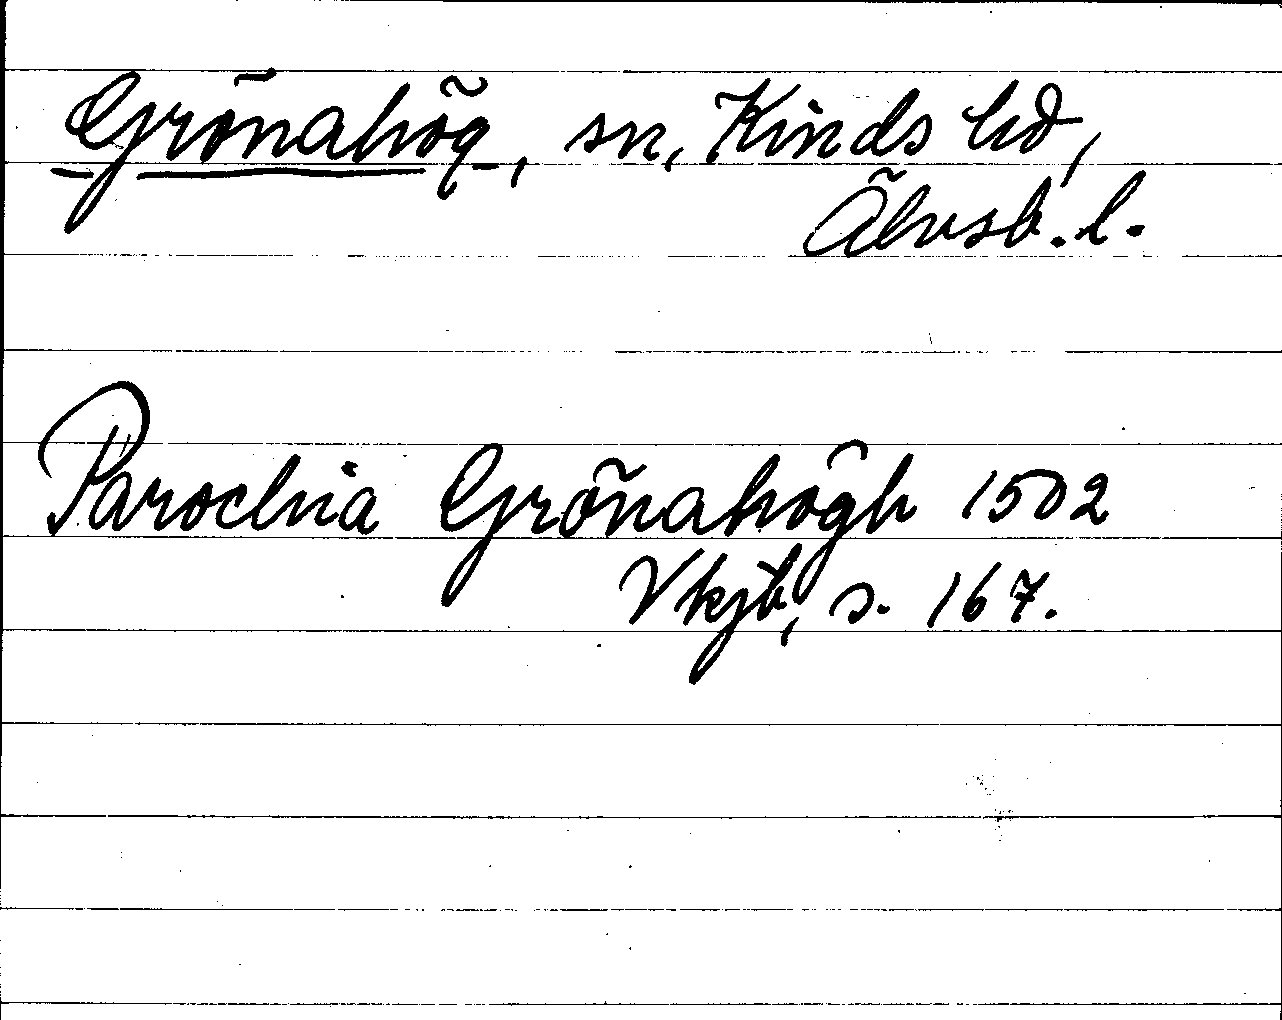 Grönahög, sn, Kinds hd,
Älvsb. l.
Parochia Grönahögh 1502
Vkjb, s. 167.